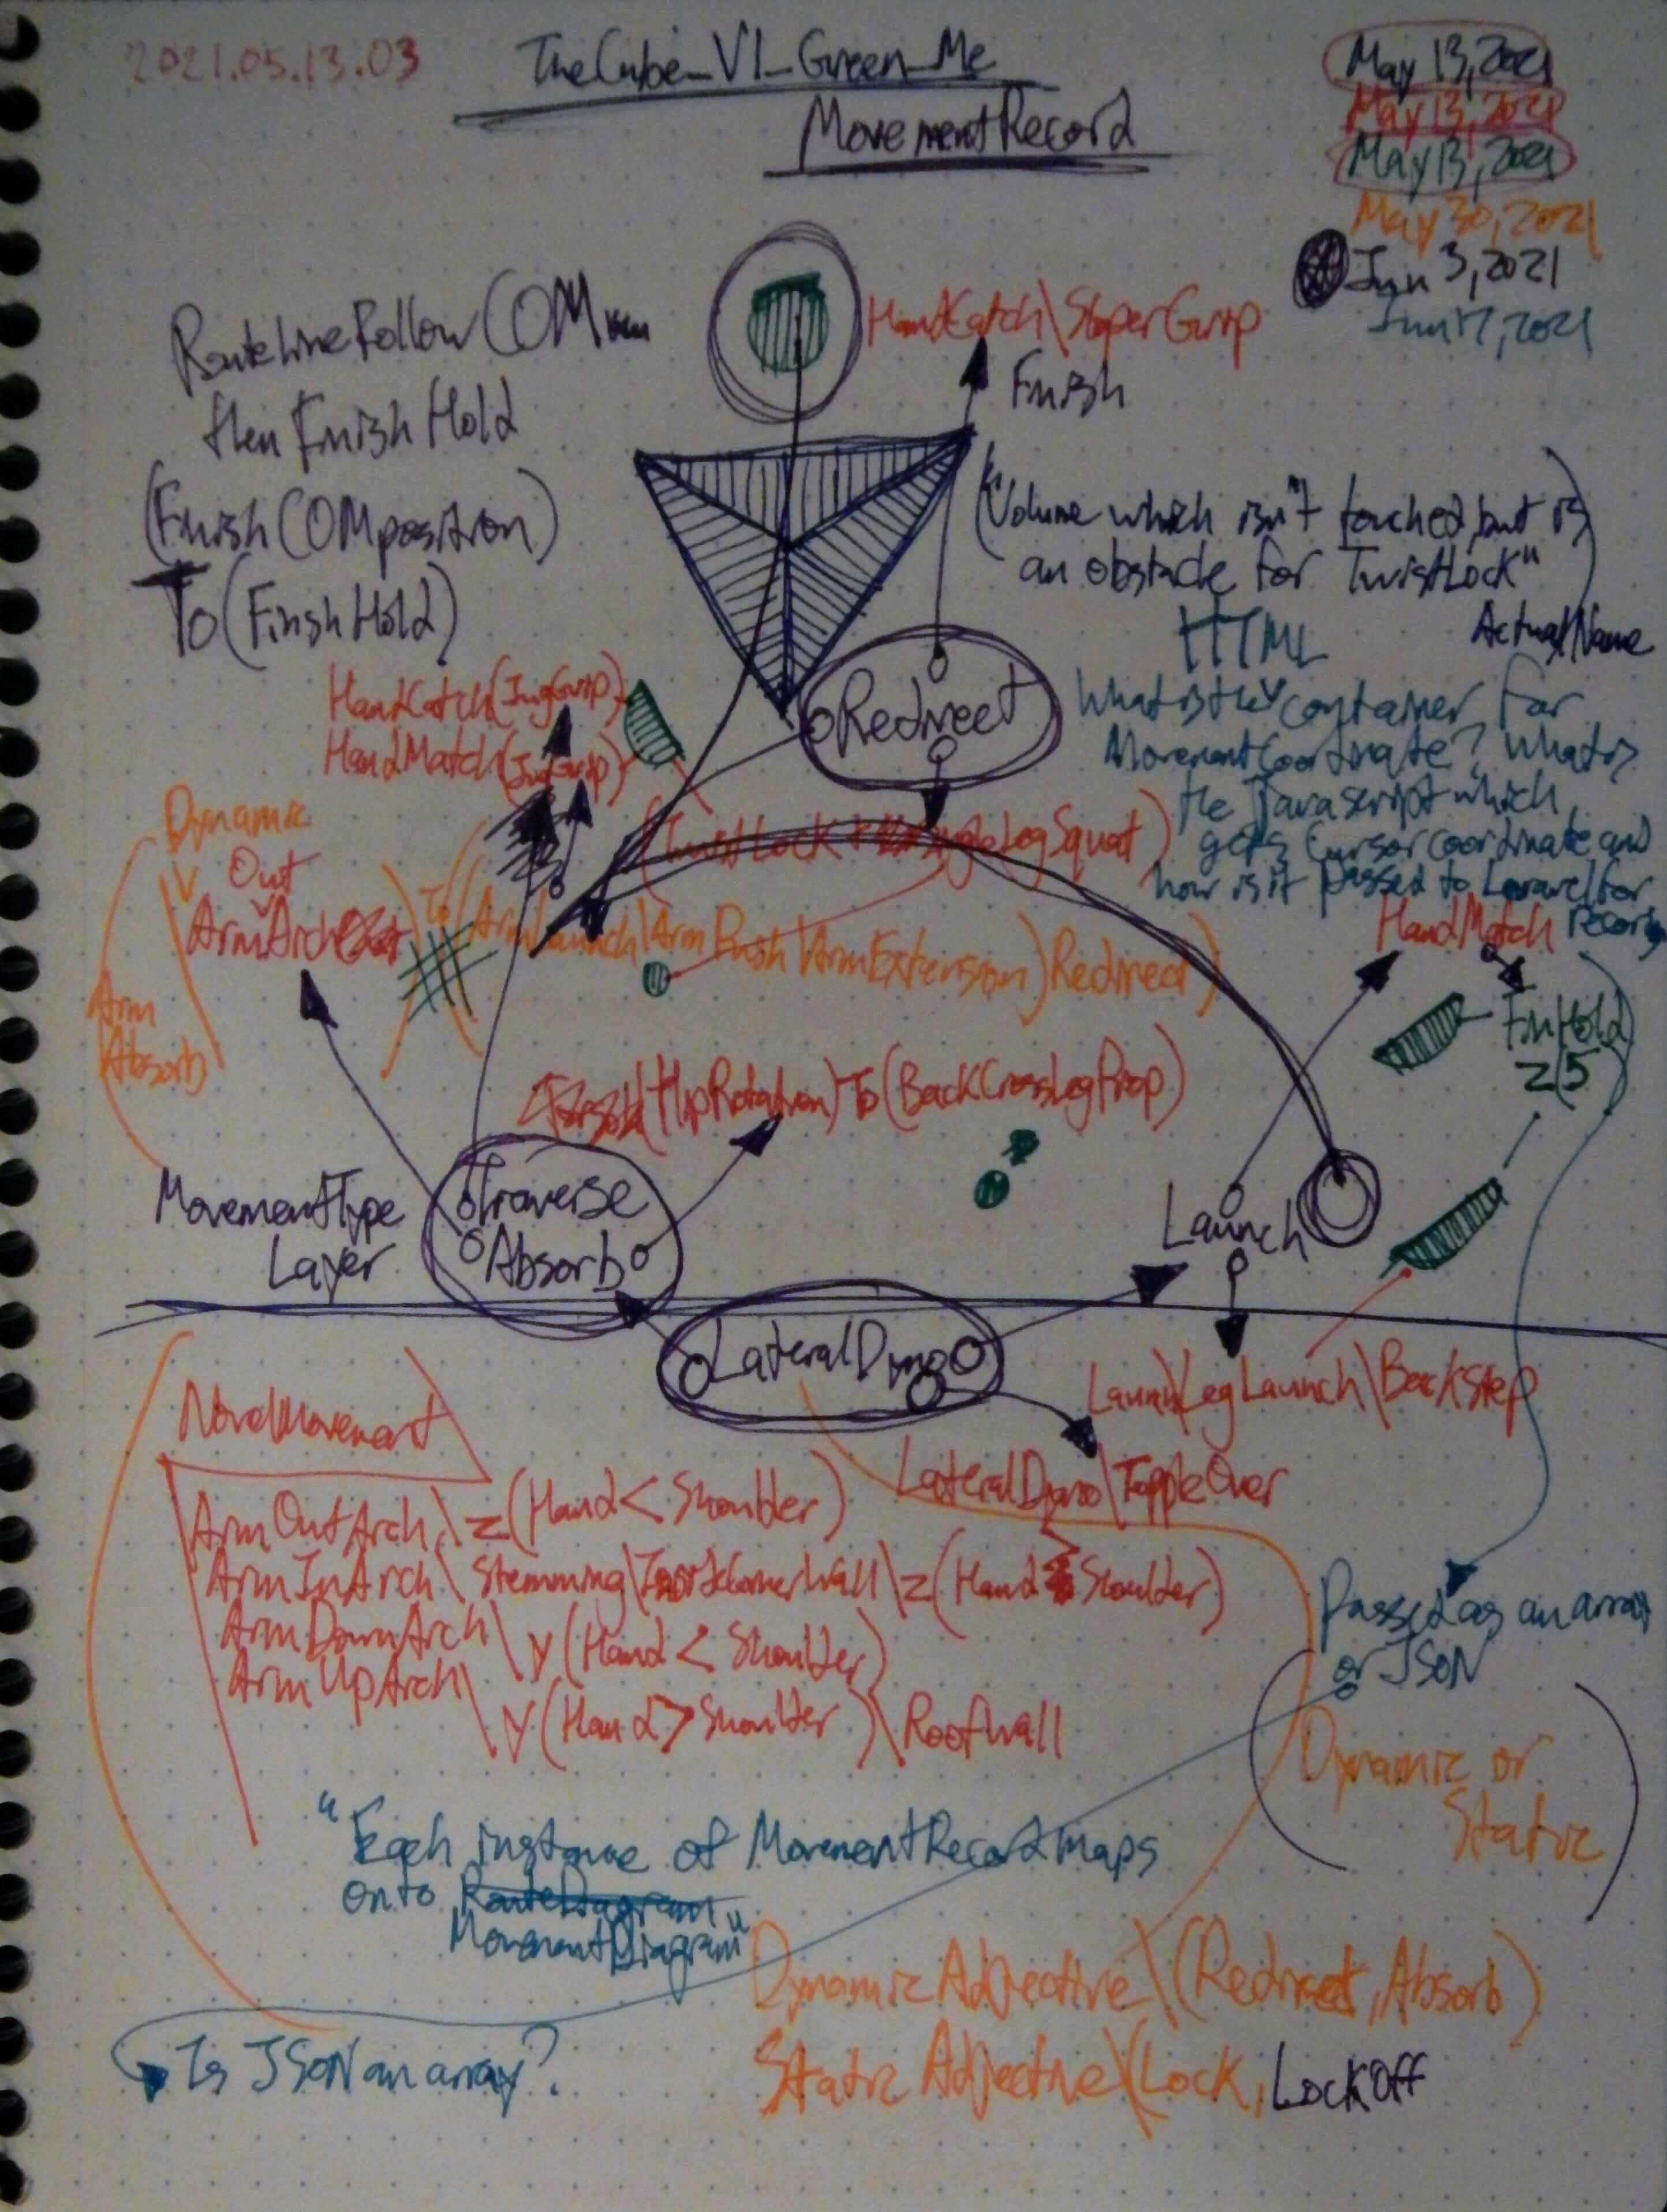 2021.05.13.03
TheCube_V1_Green_Me
MovementRecord
May 13, 2021
May 13, 2021
May 13, 2021
May 30, 2021
Jun 3, 2021
Jun 17, 2021
RouteLineFollowCOM
then Finish Hold
(FinishCOMposition)
To (FinishHold)
HandCatch\SloperGrip
Finish
("Volume which isn't touched, but is
an obstacle for TwistLock"
ActualName
HTML
What is the container for
MovementCoordinate? What is
the Javascript which
gets Cursor coordinate and
how is it passed to Laravel for
record
HandCatch(JugGrip)
HandMatch(JugGrip)
Redirect
(TwistLock + SingleLegSquat)
Dynamic
Out
ArmArch
Arm
Absorb
To((ArmLaunch\ArmPush\ArmExtension)Redirect)
HandMatch
FinHold
(HipRotation)To(BackCrossLegProp)
MovementType
Layer
Traverse
Absorb
Launch
LateralDyno
Launch\LegLaunch\BackStep
LateralDyno\ToppleOver
NovelMovement
ArmOutArch\z(Hand < Shoulder)
ArmInArch\Stemming\InsideCornerWall\z(Hand Shoulder)
ArmDownArch\y(Hand < Shoulder)
ArmUpArch\y(Hand > Shoulder)\RoofWall
Passed as an array
or JSON
(Dynamic or
Static)
"Each instance of MovementRecord maps
onto RouteDiagram
MovementDiagram"
DynamicAdjective\(Redirect, Absorb)
StaticAdjective\(Lock, LockOff
Is JSON an array?